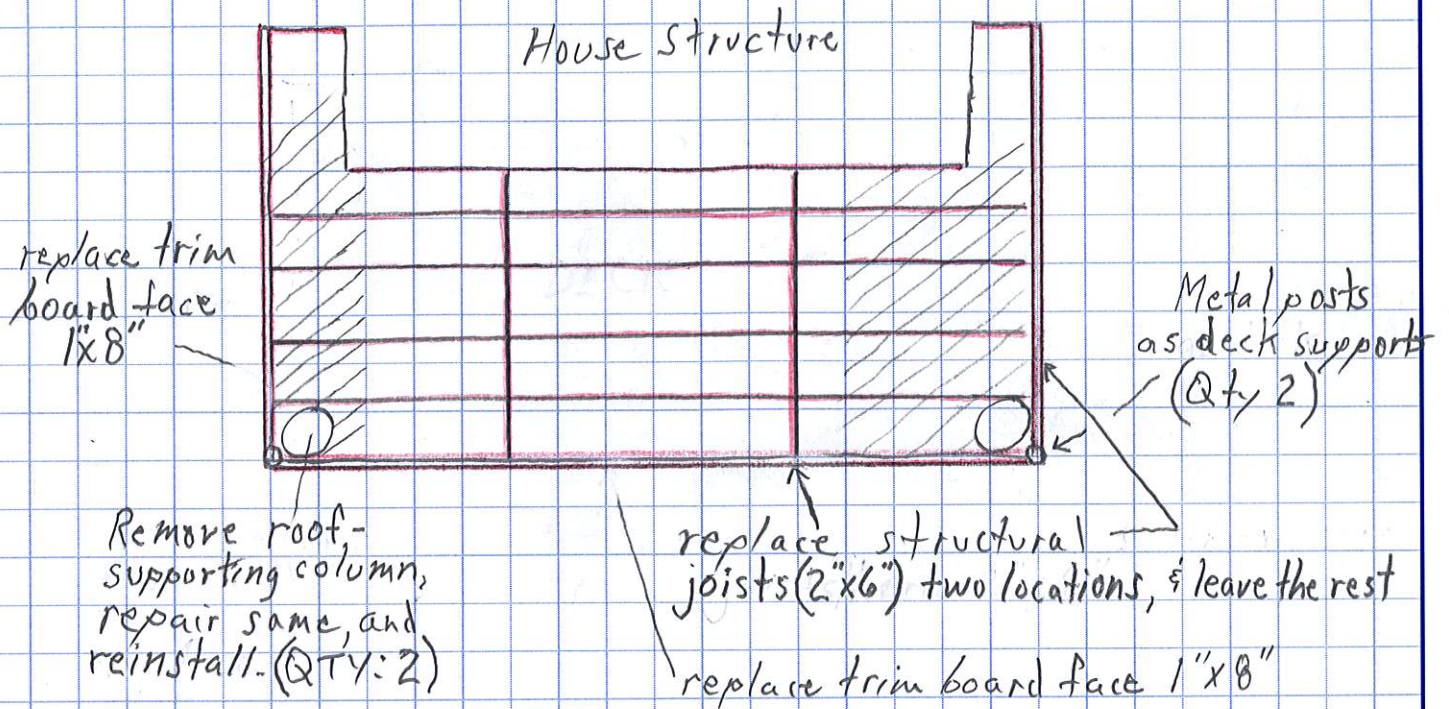 House Structure
replace trim
board face
1"x8"
Metal posts
as deck support
(Qty 2)
Remove roof-
supporting column,
repair same, and
reinstall. (QTY: 2)
replace structural
joists (2"x6") two locations, & leave the rest
replace trim board face 1"x8"